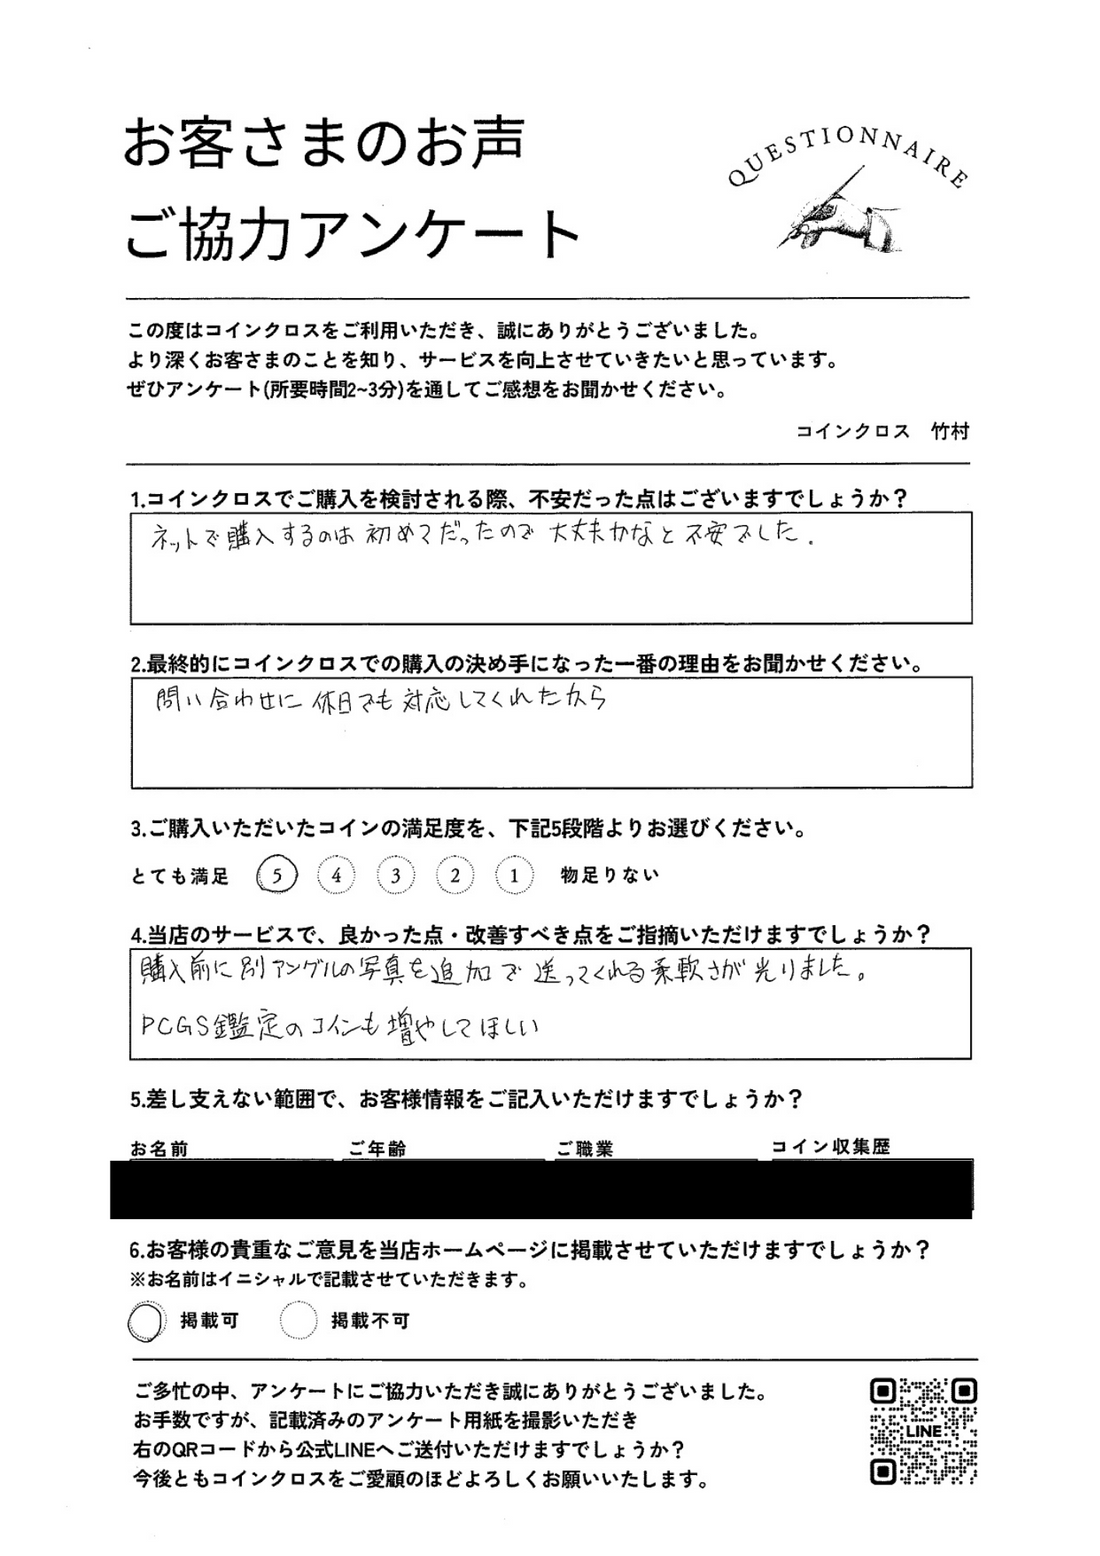 お客さまのお声
ご協力アンケート
QUESTIONNAIRE
この度はコインクロスをご利用いただき、誠にありがとうございました。
より深くお客さまのことを知り、サービスを向上させていきたいと思っています。
ぜひアンケート(所要時間2~3分)を通してご感想をお聞かせください。
コインクロス 竹村
1.コインクロスでご購入を検討される際、不安だった点はございますでしょうか？
ネットで購入するのは初めてだったので大丈夫かなと不安でした.
2.最終的にコインクロスでの購入の決め手になった一番の理由をお聞かせください。
問い合わせに休日でも対応してくれたから
3.ご購入いただいたコインの満足度を、下記5段階よりお選びください。
とても満足 5 4 3 2 1 物足りない
4.当店のサービスで、良かった点・改善すべき点をご指摘いただけますでしょうか？
購入前に別アングルの写真を追加で送ってくれる柔軟さが光りました。
PCGS鑑定のコインも増やしてほしい
5.差し支えない範囲で、お客様情報をご記入いただけますでしょうか？
お名前 ご年齢 ご職業 コイン収集歴
6.お客様の貴重なご意見を当店ホームページに掲載させていただけますでしょうか？
※お名前はイニシャルで記載させていただきます。
掲載可 掲載不可
ご多忙の中、アンケートにご協力いただき誠にありがとうございました。
お手数ですが、記載済みのアンケート用紙を撮影いただき
右のQRコードから公式LINEへご送付いただけますでしょうか？
今後ともコインクロスをご愛顧のほどよろしくお願いいたします。
LINE